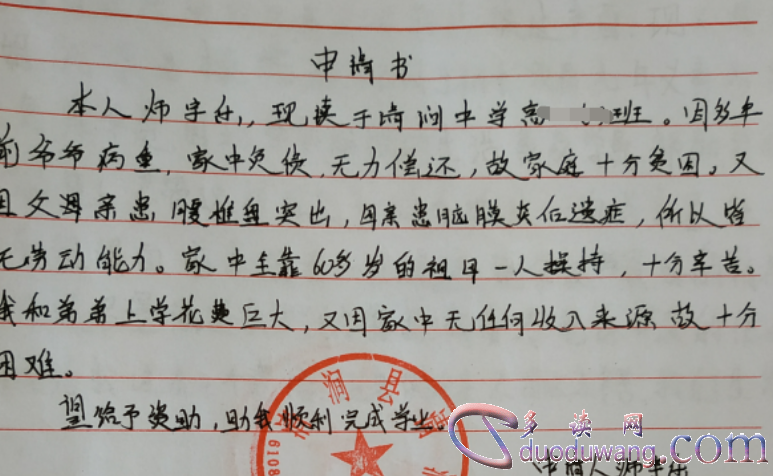 申请书
本人师宇乐,,现读于崎涧中学高 班。因多年
前爷爷病重,家中负债,无力偿还,故家庭十分贫困。又
因父母亲患腰椎盘突出,母亲患脑膜炎后遗症,所以皆
无劳动能力。家中全靠60多岁的祖母一人操持,十分辛苦。
我和弟弟上学花费巨大,又因家中无任何收入来源故十分
困难。
望给予资助,助我顺利完成学业。
涧县
6108
多读网
duoduwang.com
申请人 师宇乐